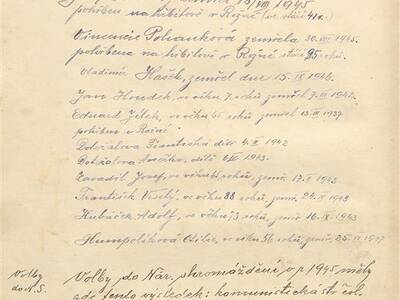 18/VIII 1945
pohřben na hřbitově v Rožné (ve stáří 41 r.)
Vincencie Pohanková zemřela 30. VIII. 1945.
pohřbena na hřbitově v Rožné stáří 95 roků.
Vladimír Hašek, zemřel dne 15. IX 1946.
Jan Houdek, ve věku 7. roků zemřel 7. III 1942.
Eduard Jílek, ve věku 65 roků, zemřel 13. IV 1937
pohřben v Rožné
Doležalova Františka dítě 4. X 1942
Doležalova Anežka, dítě 6. III 1943.
Zavadil Josef, ve věku 64 roků, zemř. 17. X 1942
František Veselý, ve věku 88 roků, zemř. 24. II 1943
Kubíček Adolf, ve věku 73 roků, zemř. 16. IX 1943
Humpolíková Otilie, ve věku 56 roků, zemř. 25. VI 1937
Volby
do N. S.
Volby do Nár. shromáždění o r 1945 měly
zde tento výsledek: komunistická str.